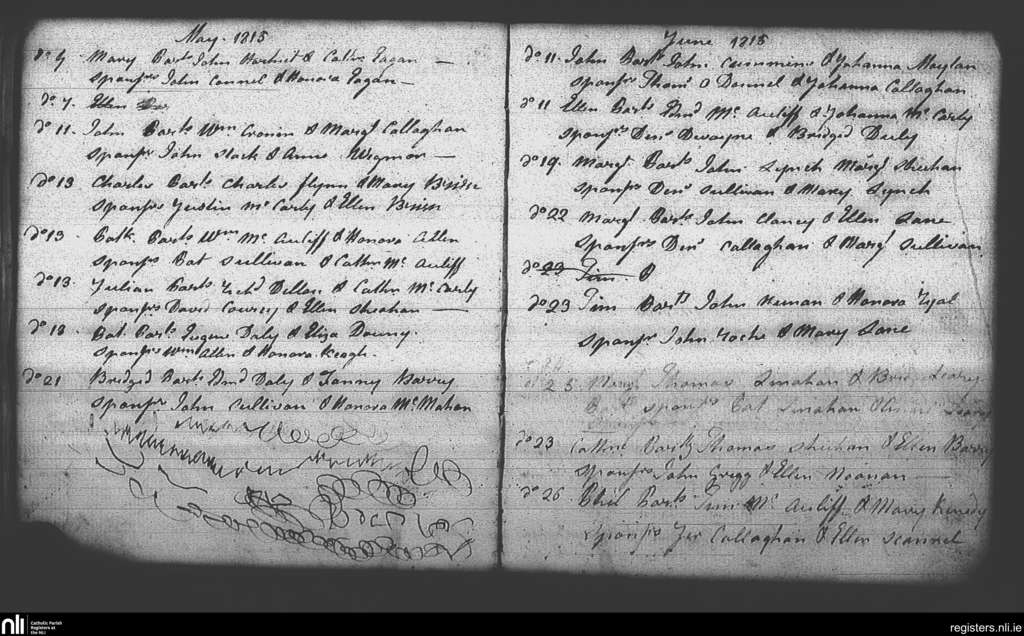 May. 1815
do 4 Mary Parts John Hartnet & Cathe Fagan
Sponsrs John Connel & Honora Fagan
do 7. Ellen
do 11. John Parts Wm Cronin & Margt Callaghan
Sponsrs John Slack & Anne
do 13 Charles Parts Charles Flynn & Mary Brien
Sponsrs Justin Mc Carty & Ellen Brien
do 13 Patk. Parts Wm Mc Auliff & Honora Allen
Sponsrs Bat Sullivan & Cathn Mc Auliff
do 13. Julian Parts Richd Dillon & Cathn Mc Carty
Sponsrs David Courcy & Ellen Sheehan
do 18 Bat. Parts Eugene Daly & Eliza Downy.
Sponsrs Wm Allen & Honora Keagh.
do 21 Bridged Parts Edmd Daly & Fanny Barry
Sponsrs John Sullivan & Honora McMahon
June 1815
do 11. John Parts John Cummins & Johanna Moylan
Sponsrs Thoms O Donnel & Johanna Callaghan
do 11 Ellen Parts Edmd Mc Auliff & Johanna Mc Carty
Sponsrs Dens Dwayne & Bridged Duly
do 19. Margt Parts John Lynch Margt Sheehan
Sponsrs Dens Sullivan & Mary Lynch
do 22 Margt Parts John Clancy & Ellen Lane
Sponsrs Dens Callaghan & Margt Sullivan
do 23 Tim &
do 23 Tim Parts John Kenan & Honora
Sponsrs John Roche & Mary Lane
25. Thomas Linahan & Leary
Sponsrs Bat Linahan Leary
do 23 Cathne Parts Thomas Sheehan & Ellen Barry
Sponsrs John Gregg & Ellen Noonan
do 26 Phil Parts Tim Mc Auliff & Mary Kenedy
Sponsrs Jer Callaghan & Ellen Scannel
nli Catholic Parish
Registers at
the NLI
registers.nli.ie